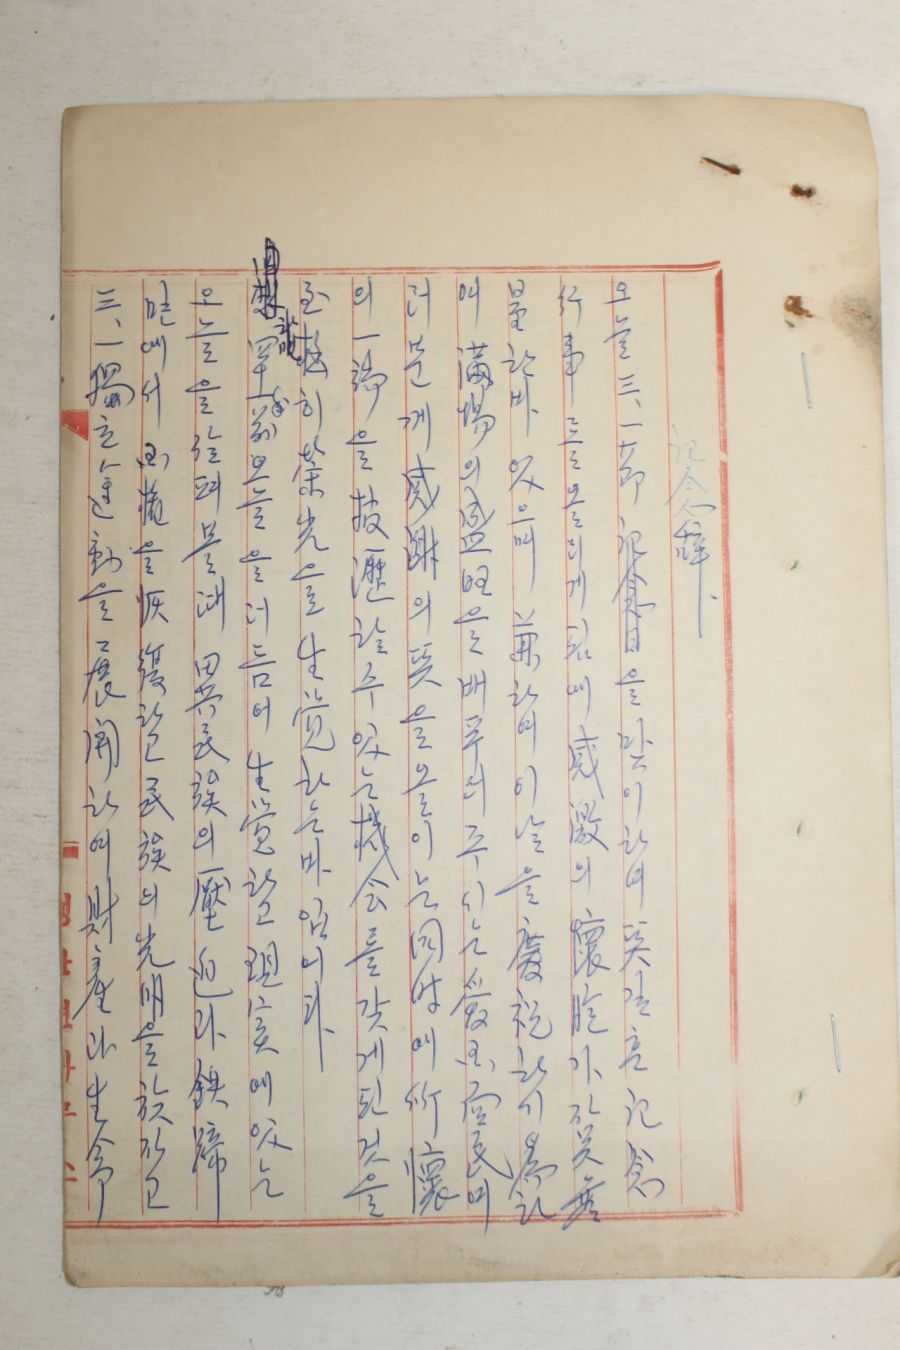 記念辭
오늘 三、一節 記念日을 맞이하여 뜻깊은 記念
行事를 올리게 됨에 感激의 懷胞가 자못 無
量한바 있으며 兼하여 이날을 慶祝하기 爲하
여 滿場의 盛旺을 베푸러 주시는 愛國同民 여
러분게 感謝의 뜻을 올이는 同時에 所懷
의 一端을 披瀝할 수 있는 機会를 갖게 된 것을
至極히 榮光으로 生覚하는바 입니다
오늘을 더듬어 生覚하고 現実에 있는
오늘을 살펴볼 때 異民族의 壓迫과 鉄蹄
밑에서 国權을 恢復하고 民族의 光明을 찾자고
三、一獨立運動을 展開하여 財產과 生命